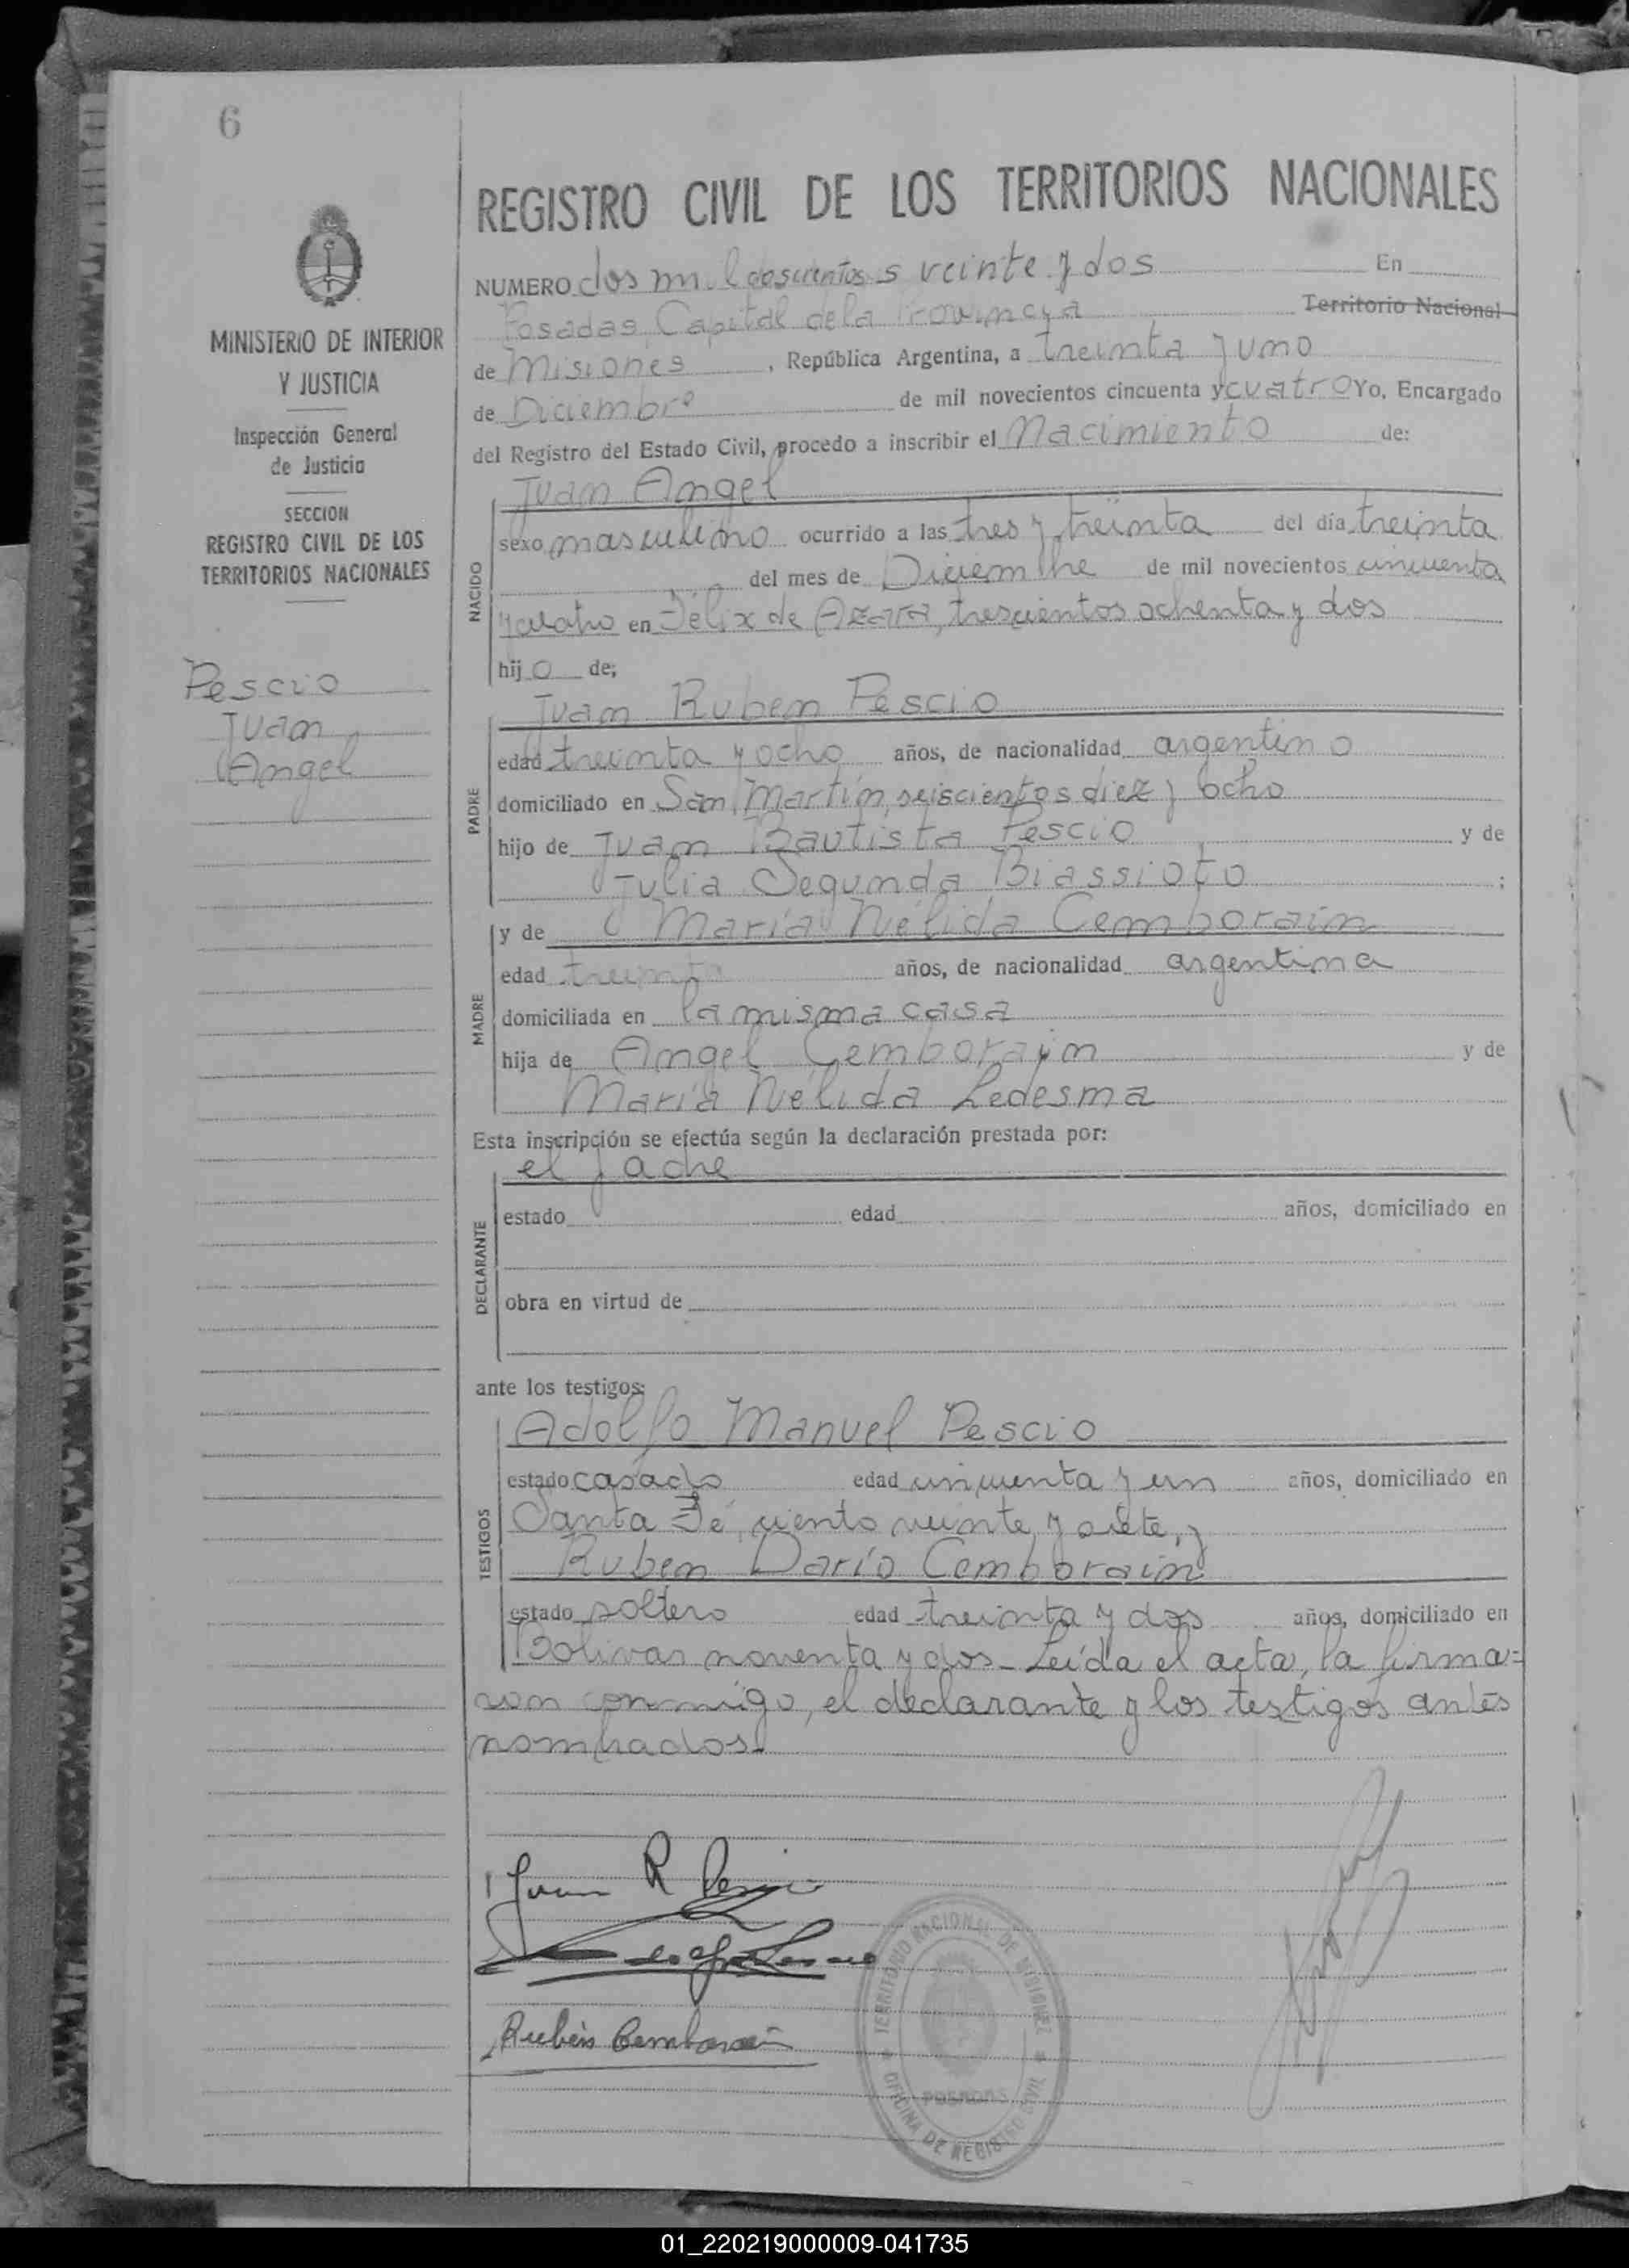 6
REGISTRO CIVIL DE LOS TERRITORIOS NACIONALES
MINISTERIO DE INTERIOR
Y JUSTICIA
Inspección General
de Justicia
SECCION
REGISTRO CIVIL DE LOS
TERRITORIOS NACIONALES
Pescio
Juan
Angel
NUMERO dos mil doscientos veinte y dos En
Posadas, Capital de la Provincia Territorio Nacional
de Misiones, República Argentina, a treinta y uno
de Diciembre de mil novecientos cincuenta y cuatro Yo, Encargado
del Registro del Estado Civil, procedo a inscribir el Nacimiento de:
NACIDO
Juan Angel
sexo masculino ocurrido a las tres y treinta del día treinta
del mes de Diciembre de mil novecientos cincuenta
y cuatro en Félix de Azara, trescientos ochenta y dos
hijo de;
PADRE
Juan Ruben Pescio
edad treinta y ocho años, de nacionalidad argentino
domiciliado en San Martín, seiscientos diez y ocho
hijo de Juan Bautista Pescio y de
Julia Segunda Biassioto ;
MADRE
y de María Nélida Cemborain
edad treinta años, de nacionalidad argentina
domiciliada en la misma casa
hija de Angel Cemborain y de
María Nélida Ledesma
Esta inscripción se efectúa según la declaración prestada por:
DECLARANTE
el padre
estado edad años, domiciliado en
obra en virtud de
ante los testigos:
TESTIGOS
Adolfo Manuel Pescio
estado casado edad cincuenta y un años, domiciliado en
Santa Fé, ciento veinte y siete, y
Ruben Darío Cemborain
estado soltero edad treinta y dos años, domiciliado en
Bolivar noventa y dos_ Leída el acta, la firma=
ron conmigo, el declarante y los testigos antes
nombrados_
Juan R Pescio
Rubén Cemborain
TERRITORIO NACIONAL DE MISIONES
POSADAS
OFICINA DE REGISTRO CIVIL
01_220219000009-041735